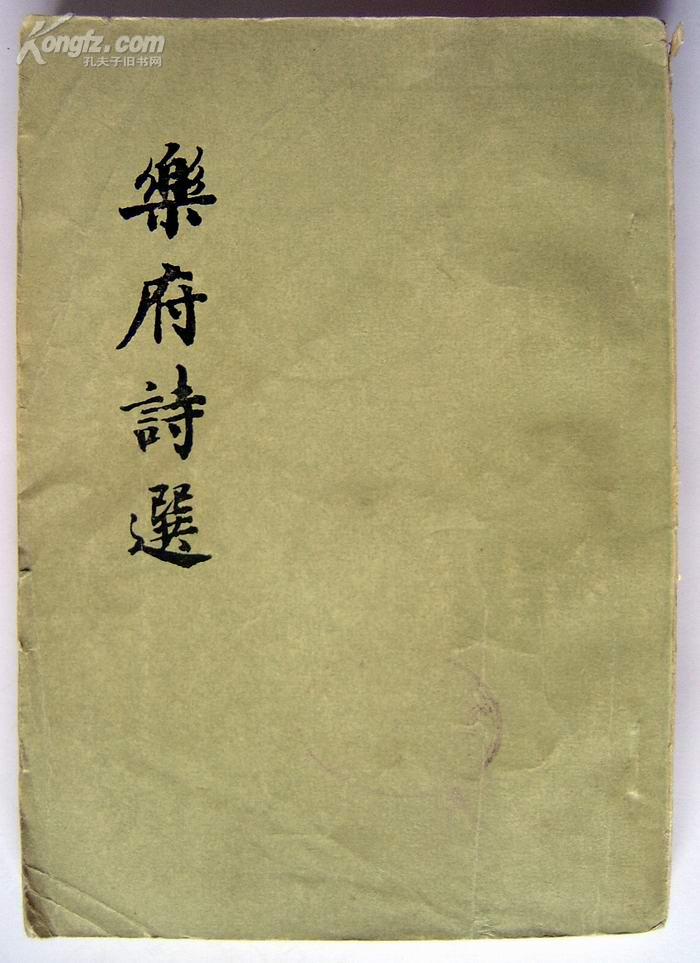 Kongfz.com
孔夫子旧书网
樂府詩選